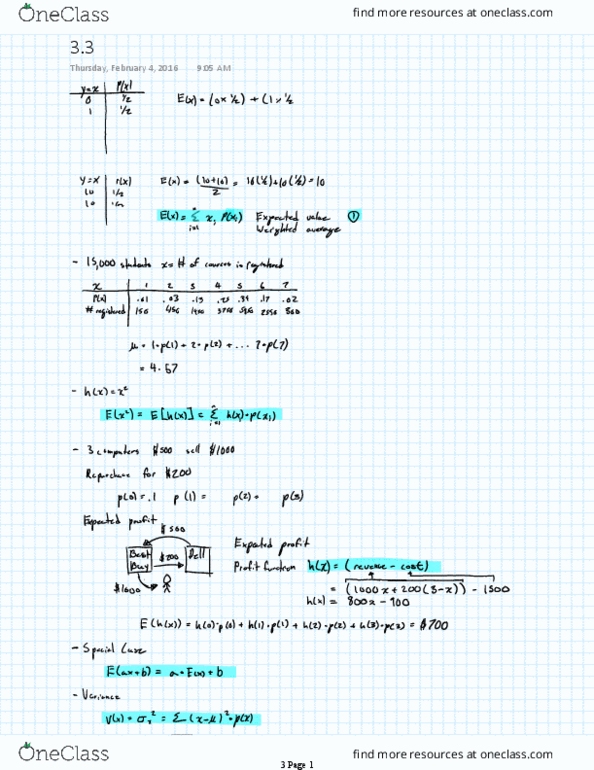 OneClass find more resources at oneclass.com
3.3
Thursday, February 4, 2016 9:05 AM
y=x P(x)
0 1/2
1 1/2
E(x) = (0x 1/2) + (1 x 1/2
y=x P(x)
10 1/2
10
E(x) = (10+10)/2 = 10(1/2)+10(1/2) = 10
E(x) = Σ xi P(xi) Expected value ①
i=1 Weighted average
- 15,000 students x = # of courses is registered
x 1 2 3 4 5 6 7
P(x) .01 .03 .13 .25 .39 .17 .02
# registered 150 450
μ = 1·p(1) + 2·p(2) + ... 7·p(7)
= 4.57
- h(x) = x²
E(x²) = E[h(x)] = Σ h(xi)·p(xi)
- 3 computers $500 sell $1000
Repurchase for $200
p(0) = .1 p(1) = p(2) = p(3)
Expected profit
$500
Best Buy $200 Dell
$1000
Expected profit
Profit function h(x) = (revenue - cost)
= (1000x + 200(3-x)) - 1500
h(x) = 800x - 900
E(h(x)) = h(0)·p(0) + h(1)·p(1) + h(2)·p(2) + h(3)·p(3) = $700
- Special Case
E(ax+b) = a·E(x) + b
- Variance
V(x) = σx² = Σ (x-μ)²·p(x)
OneClass find more resources at oneclass.com
3 Page 1